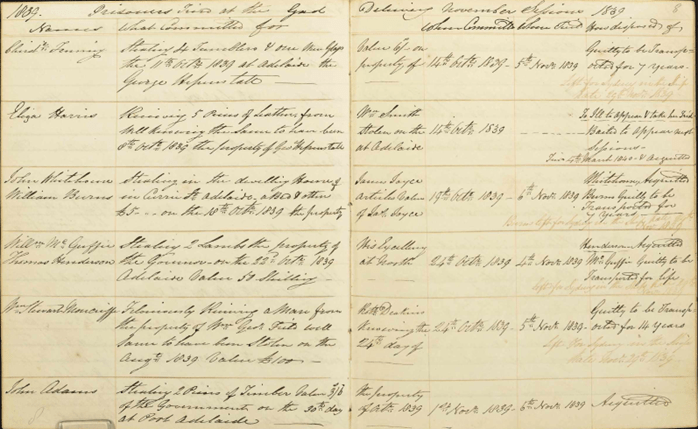 1839. Prisoners Tried at the Gaol Delivery November Sessions 1839 8
Names What Committed for When Committed When Tried How disposed of
Stealing 4 Tumblers & one Wine Glass Value 6/- on
the 11th Octr 1839 at Adelaide the property of 14th Octr 1839 5th Novr 1839
George
Guilty to be Transp-
orted for 7 years.
Eliza Harris Receiving 5 Pieces of Leather from Wm Smith
Well Knowing the Same to have been Stolen on the 15th Octr 1839
8th Octr 1839 the property of Geo at Adelaide
To Ill to appear & take her Trial
Bailed to appear next
Sessions
Tried March 1840 & Acquitted
John Whitehorn Stealing in the dwelling House of James Joyce
William Burns in Currie St Adelaide, a Bed & other Articles Value 19th Octr 1839 6th Novr 1839
£5 -- on the 18th Octr 1839 the property of Jas Joyce
Whitehorn Acquitted
Burns Guilty to be
Transported for
7 years
Willm Mc Guffie Stealing 2 Lambs the property of His Excellency
Thomas Henderson the Governor on the 22d Octr 1839 at North 24th Octr 1839 4th Novr 1839
Adelaide Value 50 Shillings
Henderson Acquitted
Mc Guffie Guilty to be
Transported for life
Wm Stewart Moncrieff Feloniously Receiving a Mare from
the property of Wm Geo. Field well Knowing the 24th Octr 1839 5th Novr 1839
Same to have been Stolen on the 24th day of
Augt 1839 Value £100
Guilty to be Transp-
orted for 14 years
John Adams Stealing 2 Pieces of Timber Value the property
of the Government on the 30th day of Octr 1839 1st Novr 1839 6th Novr 1839 Acquitted
at Port Adelaide